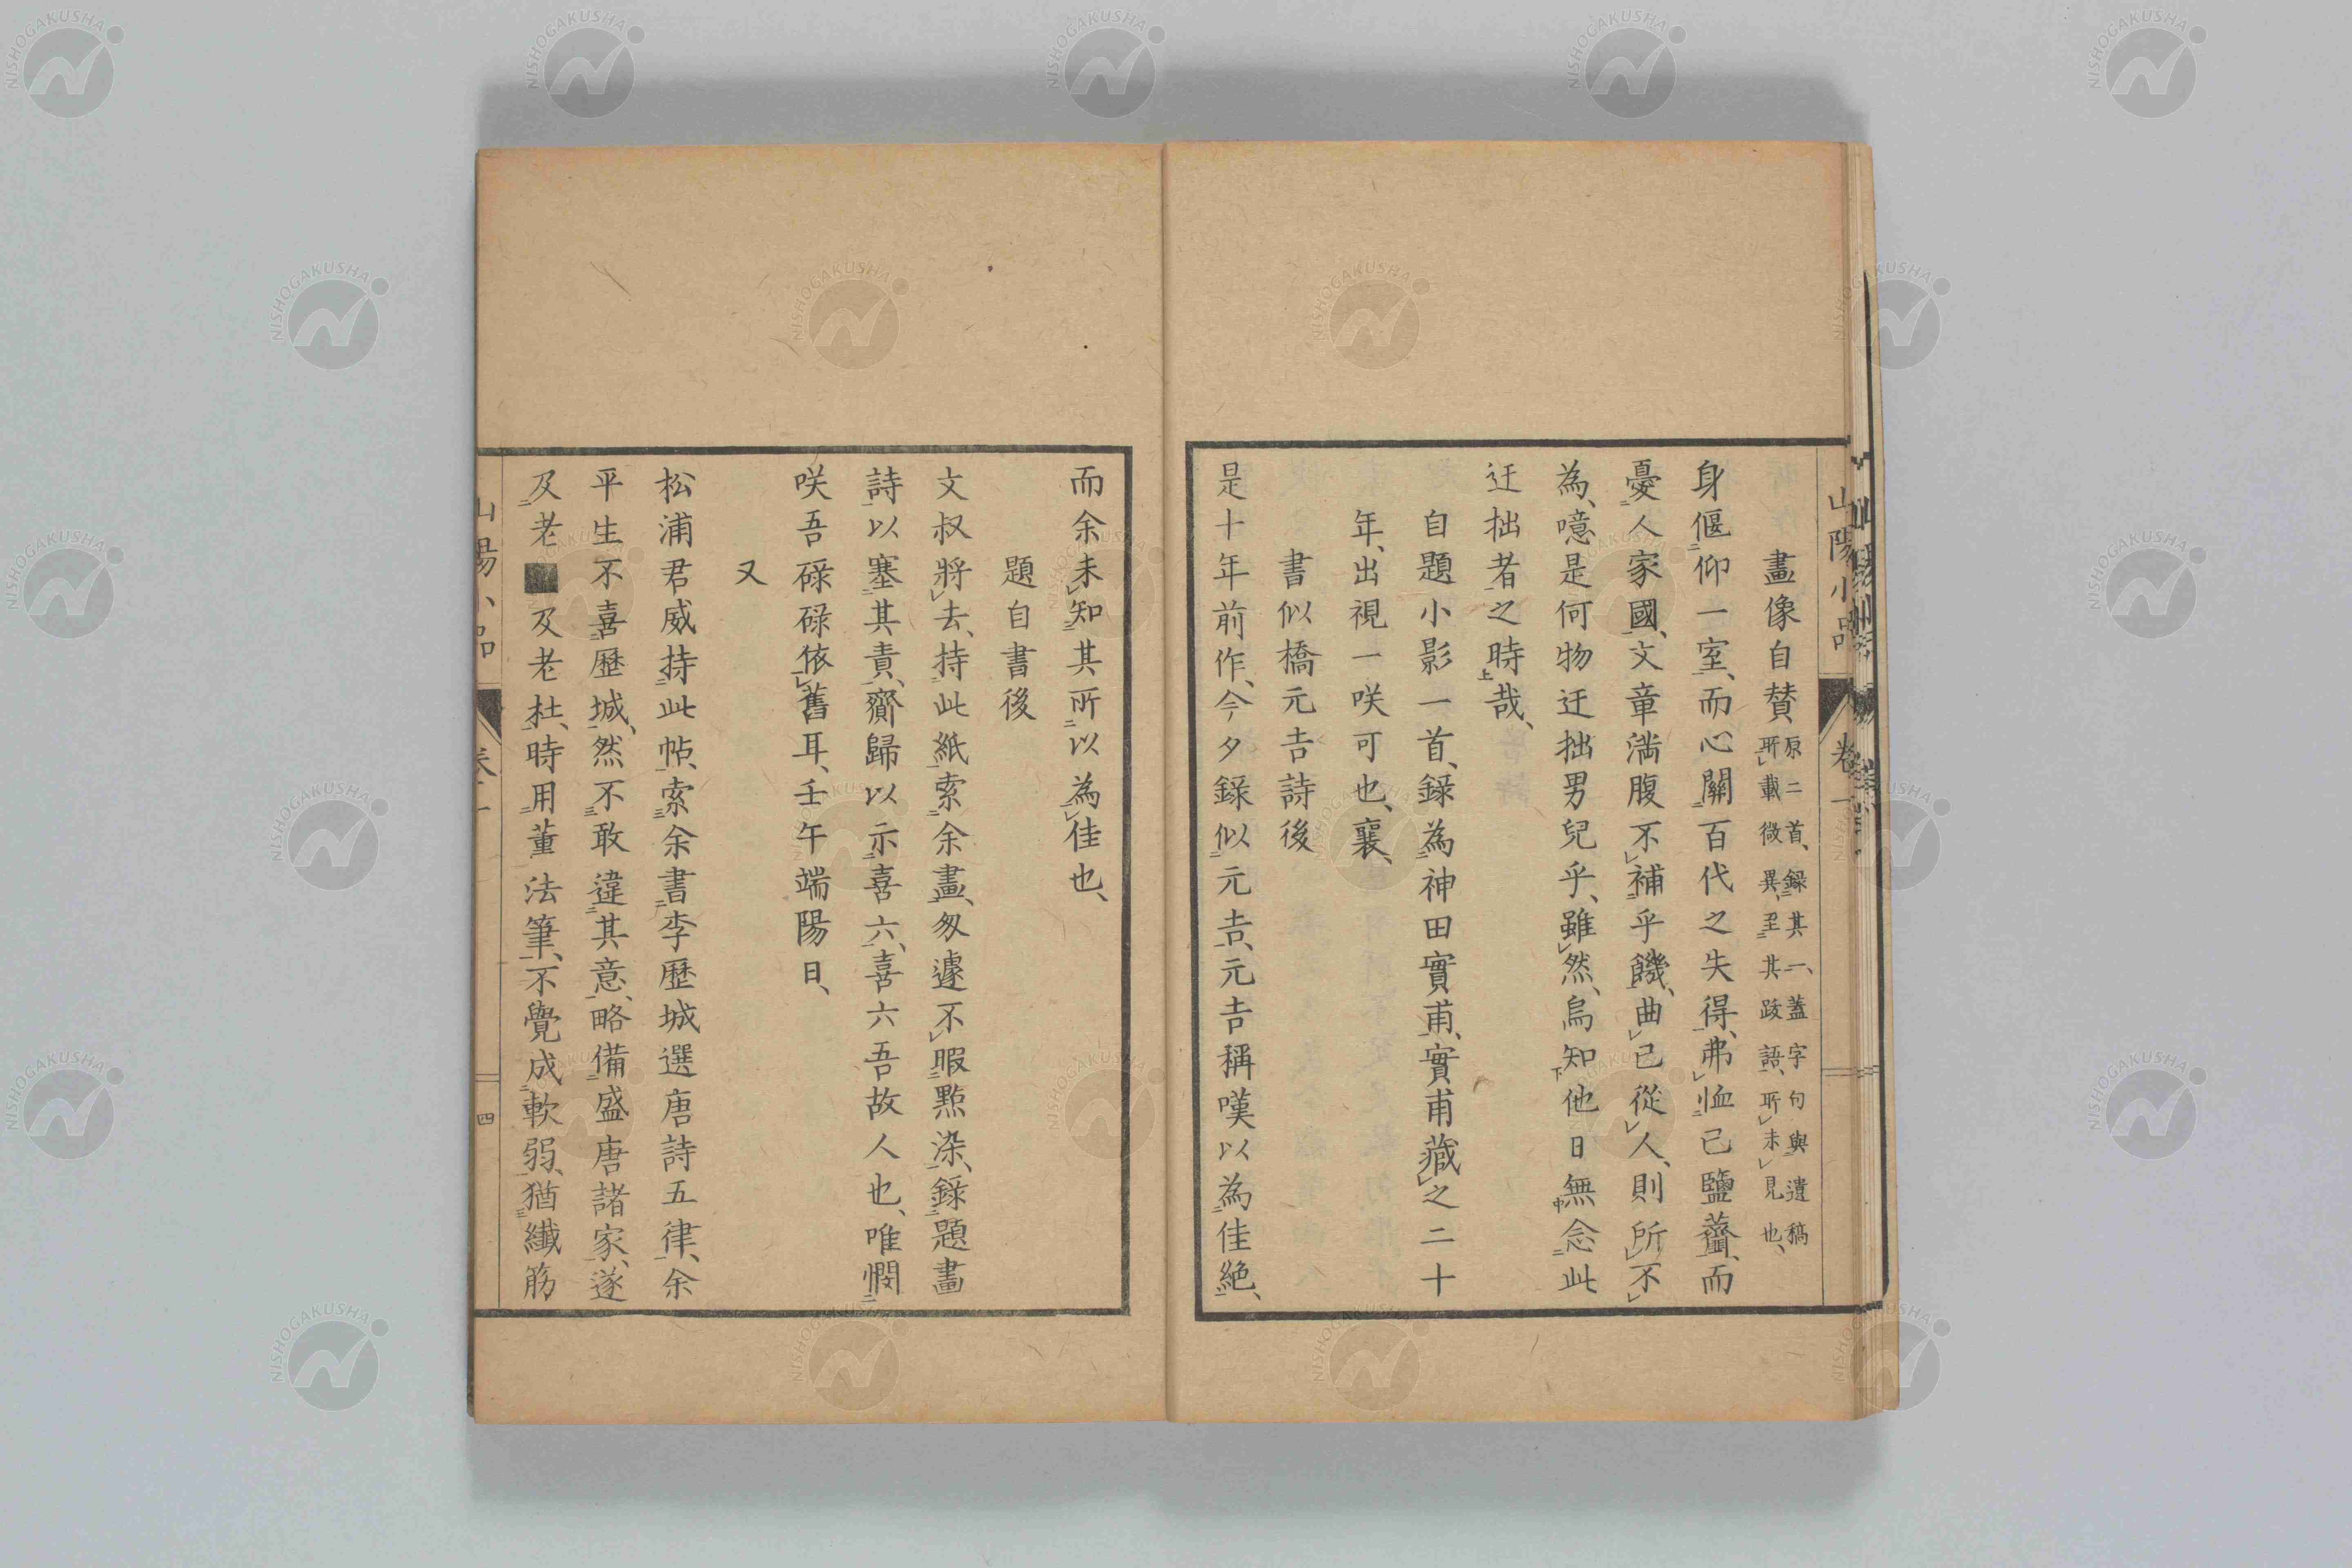 山陽小品 卷一
畫像自賛 原二首、錄其一、蓋字句與遺稿
所載微異、至其跋語、所未見也、
身偃仰一室、而心關百代之失得、弗恤己鹽虀、而
憂人家國、文章滿腹、不補乎饑、曲己從人、則所不
為、噫是何物迂拙男兒乎、雖然、烏知他日無念此
迂拙者之時哉、
自題小影一首、錄為神田實甫、實甫藏之二十
年、出視一咲可也、襄、
書似橋元吉詩後
是十年前作、今夕錄似元吉、元吉稱嘆以為佳絕、
而余未知其所以為佳也、
題自書後
文叔將去、持此紙索余畫、匆遽不暇點染、錄題畫
詩以塞其責、齎歸以示喜六、喜六吾故人也、唯憫
咲吾碌碌依舊耳、壬午端陽日、
又
松浦君威持此帖、索余書李歷城選唐詩五律、余
平生不喜歷城、然不敢違其意、略備盛唐諸家、遂
及老■及老杜、時用董法筆、不覺成軟弱、猶纎筋
山陽小品 卷一 四
NISHOGAKUSHA